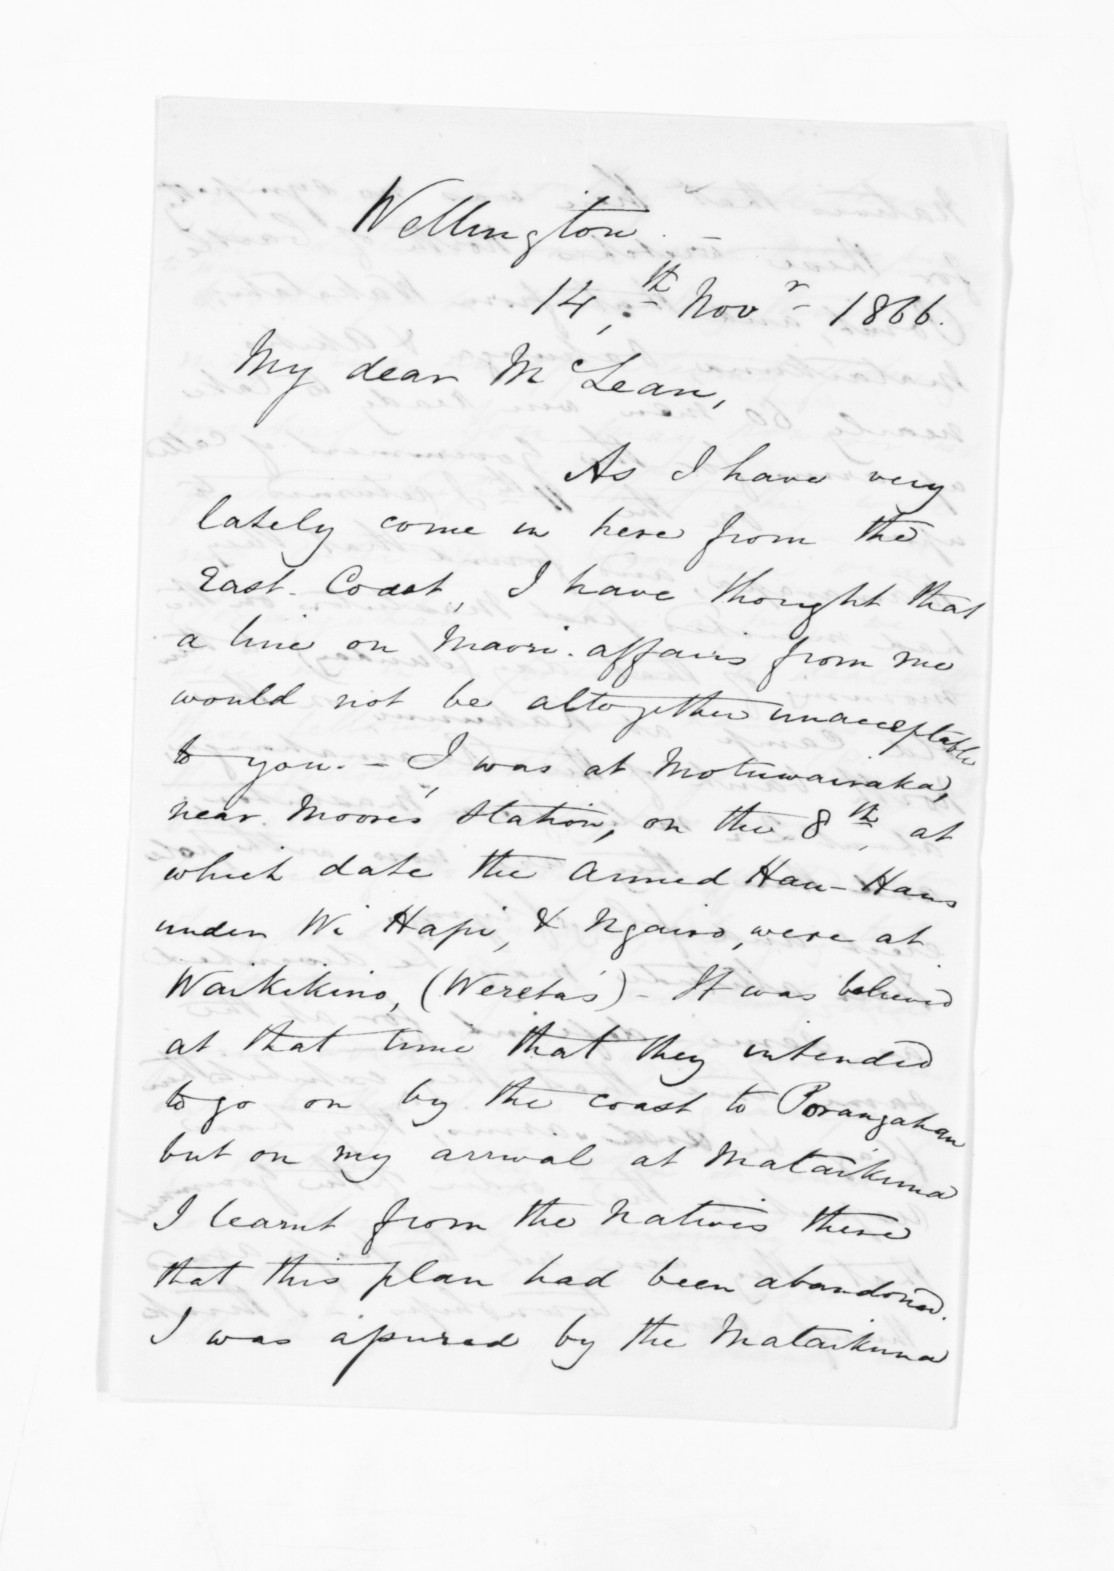 Wellington. –
14,th Novr 1866.
My dear McLean,
As I have very
lately come in here from the
East. Coast, I have thought that
a line on Maori. affairs from me
would not be altogether unacceptable
to you. – I was at Motuwairaka,
near Moore's Station, on the 8th, at
which date the armed Hau-Haus
under Wi Hapi, & Ngairo, were at
Waikikino, (Wereta's) – It was believed
at that time that they intended
to go on by the coast to Porangahau
but on my arrival at Mataikuna
I learnt from the Natives there
that this plan had been abandoned.
I was assured by the Mataikuna